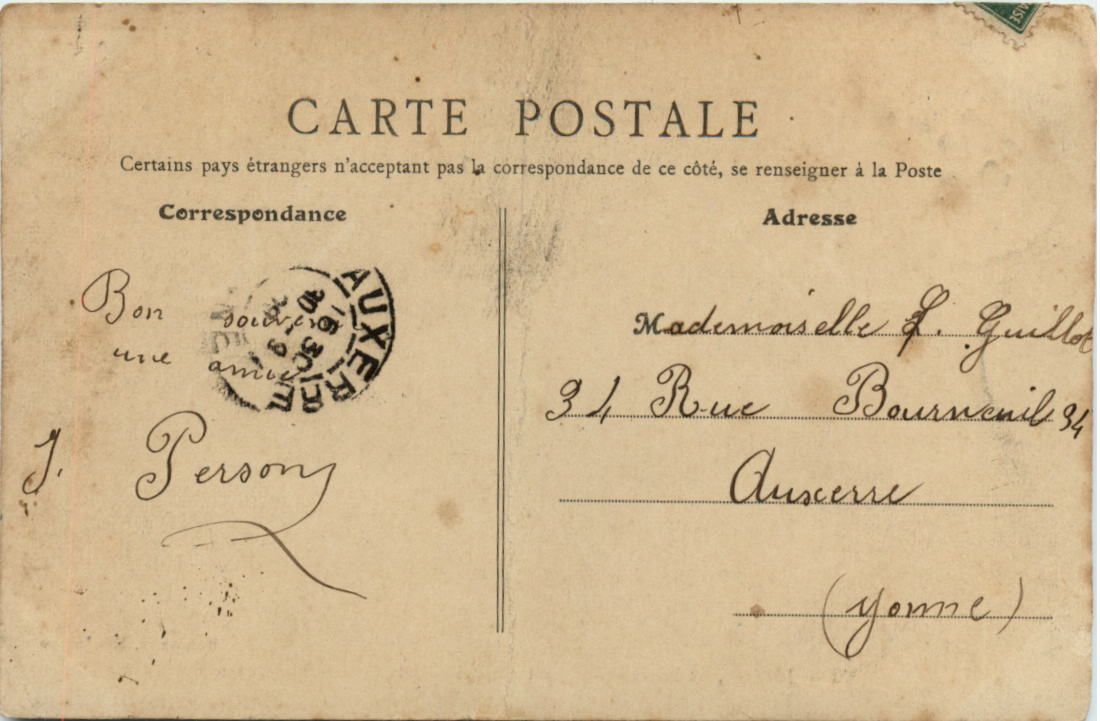 CARTE POSTALE
Certains pays étrangers n'acceptant pas la correspondance de ce côté, se renseigner à la Poste
Correspondance
Adresse
Bon souvenir
une amie
J. Person
AUXERRE
16 30
Mademoiselle L. Guillot
34 Rue Bourneil 34
Auxerre
(Yonne)